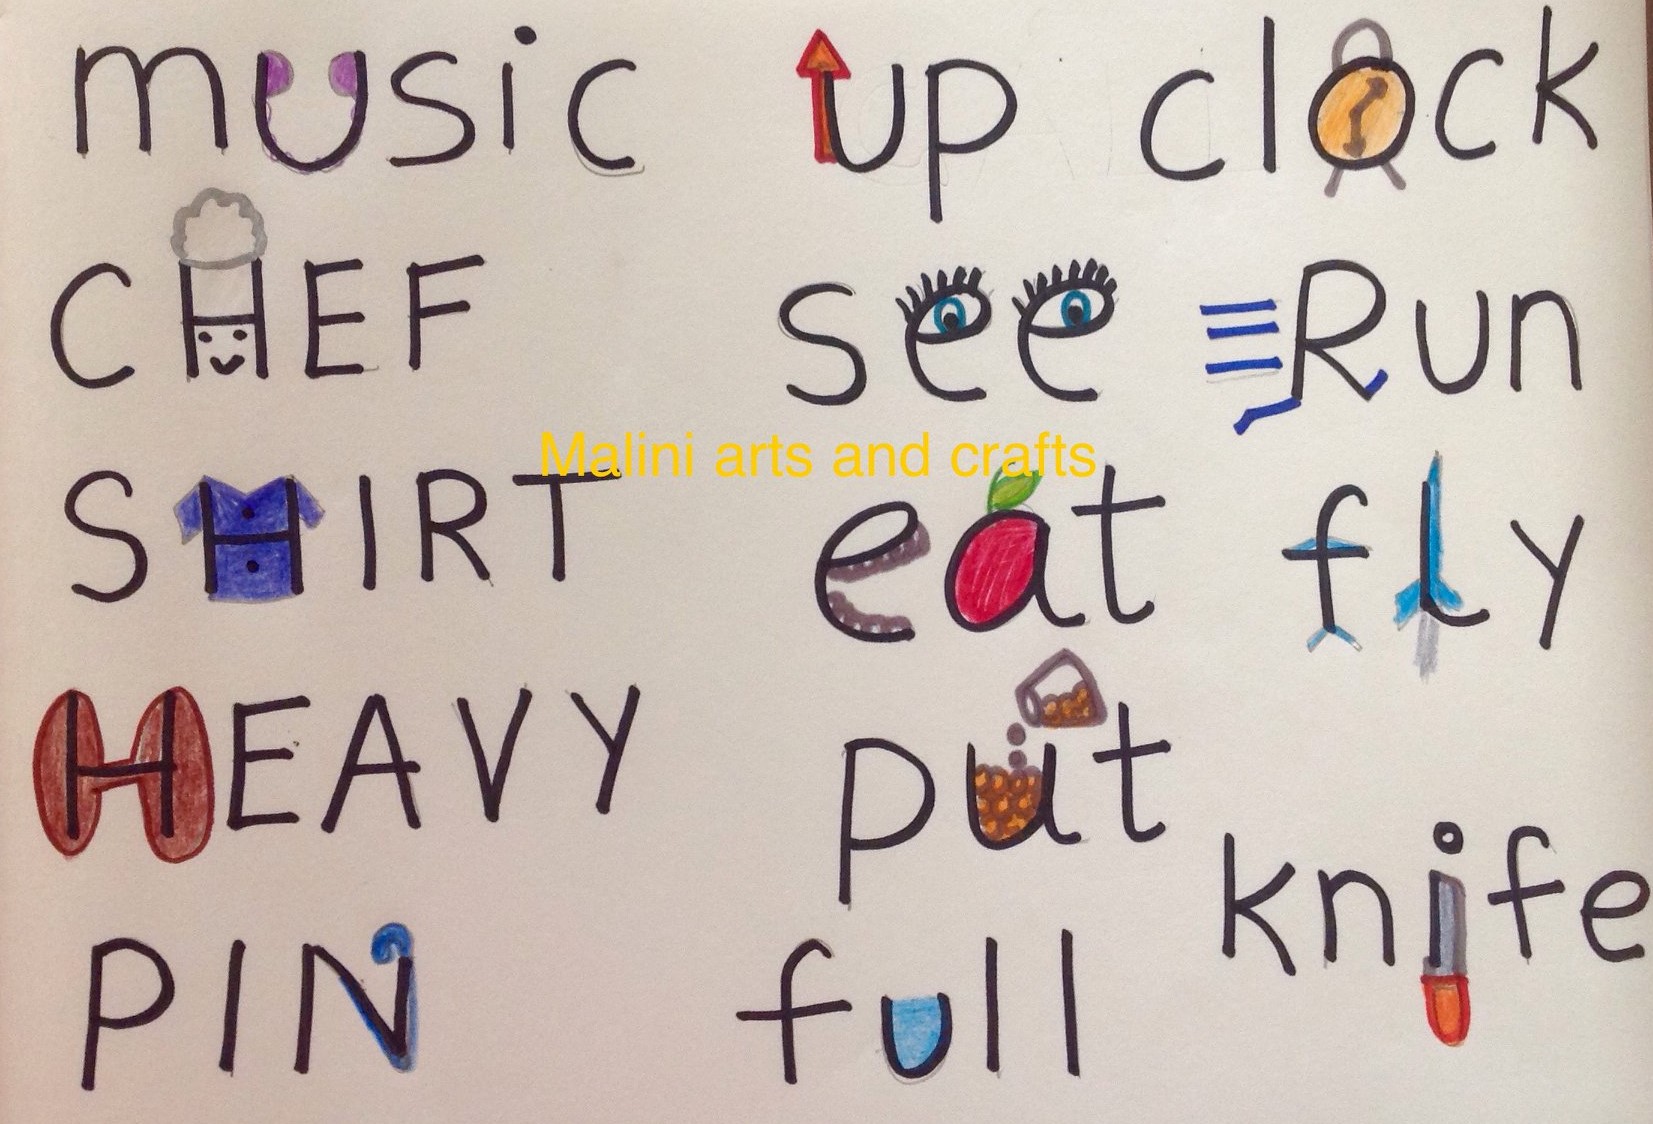 music up clock
CHEF see Run
Malini arts and crafts
SHIRT eat fly
HEAVY put
knife
PIN full